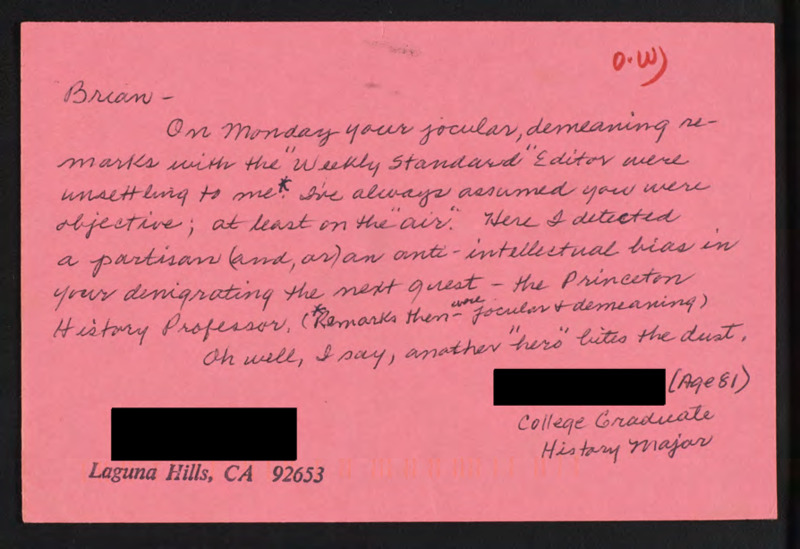 O.W)
Brian -
On Monday your jocular, demeaning re-
marks with the "Weekly Standard" Editor were
unsettling to me*. I've always assumed you were
objective; at least on the "air". Here I detected
a partisan (and, or) an anti-intellectual bias in
your denigrating the next guest - the Princeton
History Professor. (*Remarks then - were jocular & demeaning)
Oh well, I say, another "hero" bites the dust.
(Age 81)
College Graduate
History Major
Laguna Hills, CA 92653